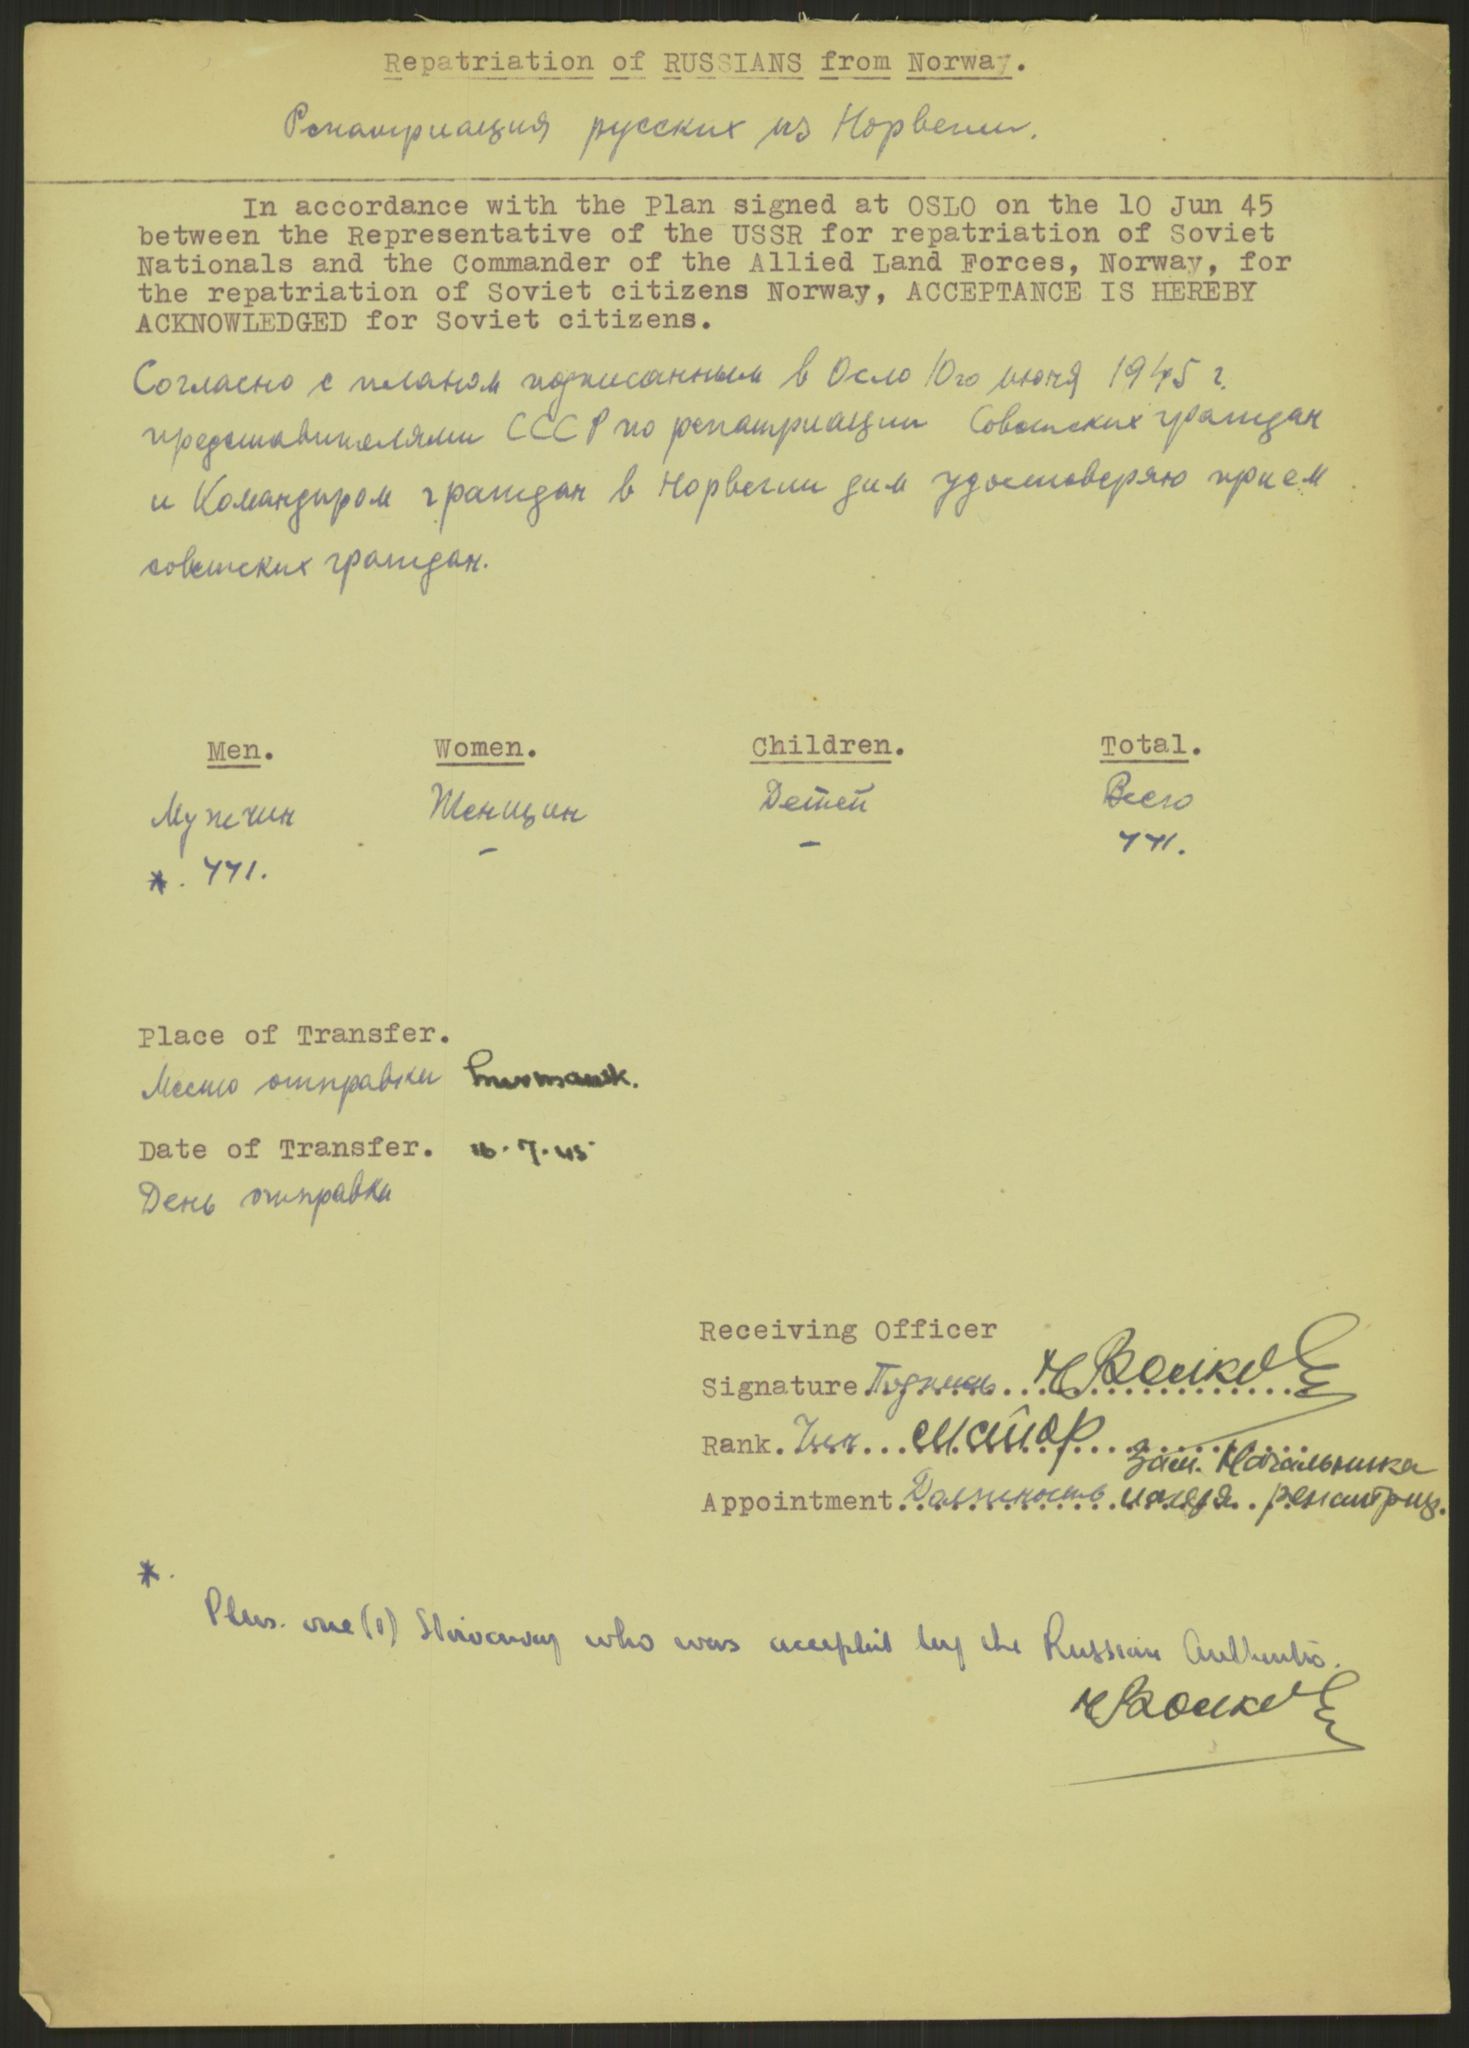 Repatriation of RUSSIANS from Norway.
Репатриация русских из Норвегии.
In accordance with the Plan signed at OSLO on the 10 Jun 45
between the Representative of the USSR for repatriation of Soviet
Nationals and the Commander of the Allied Land Forces, Norway, for
the repatriation of Soviet citizens Norway, ACCEPTANCE IS HEREBY
ACKNOWLEDGED for Soviet citizens.
Согласно с планом подписанным в Осло 10го июня 1945 г.
представителями СССР по репатриации Советских граждан
и Командиром граждан в Норвегии дим удостоверяю прием
советских граждан.
Men. Women. Children. Total.
Мужчин Женщин Детей Всего
*. 771. - - 771.
Place of Transfer.
Место отправки Murmansk.
Date of Transfer. 16.7.45
День отправки
Receiving Officer
Signature Подпись Волков
Rank. Чин майор
Зам. Начальника
Appointment Должность лагеря репатриац.
*.
Plus one (1) Stowaway who was accepted by the Russian
Волков